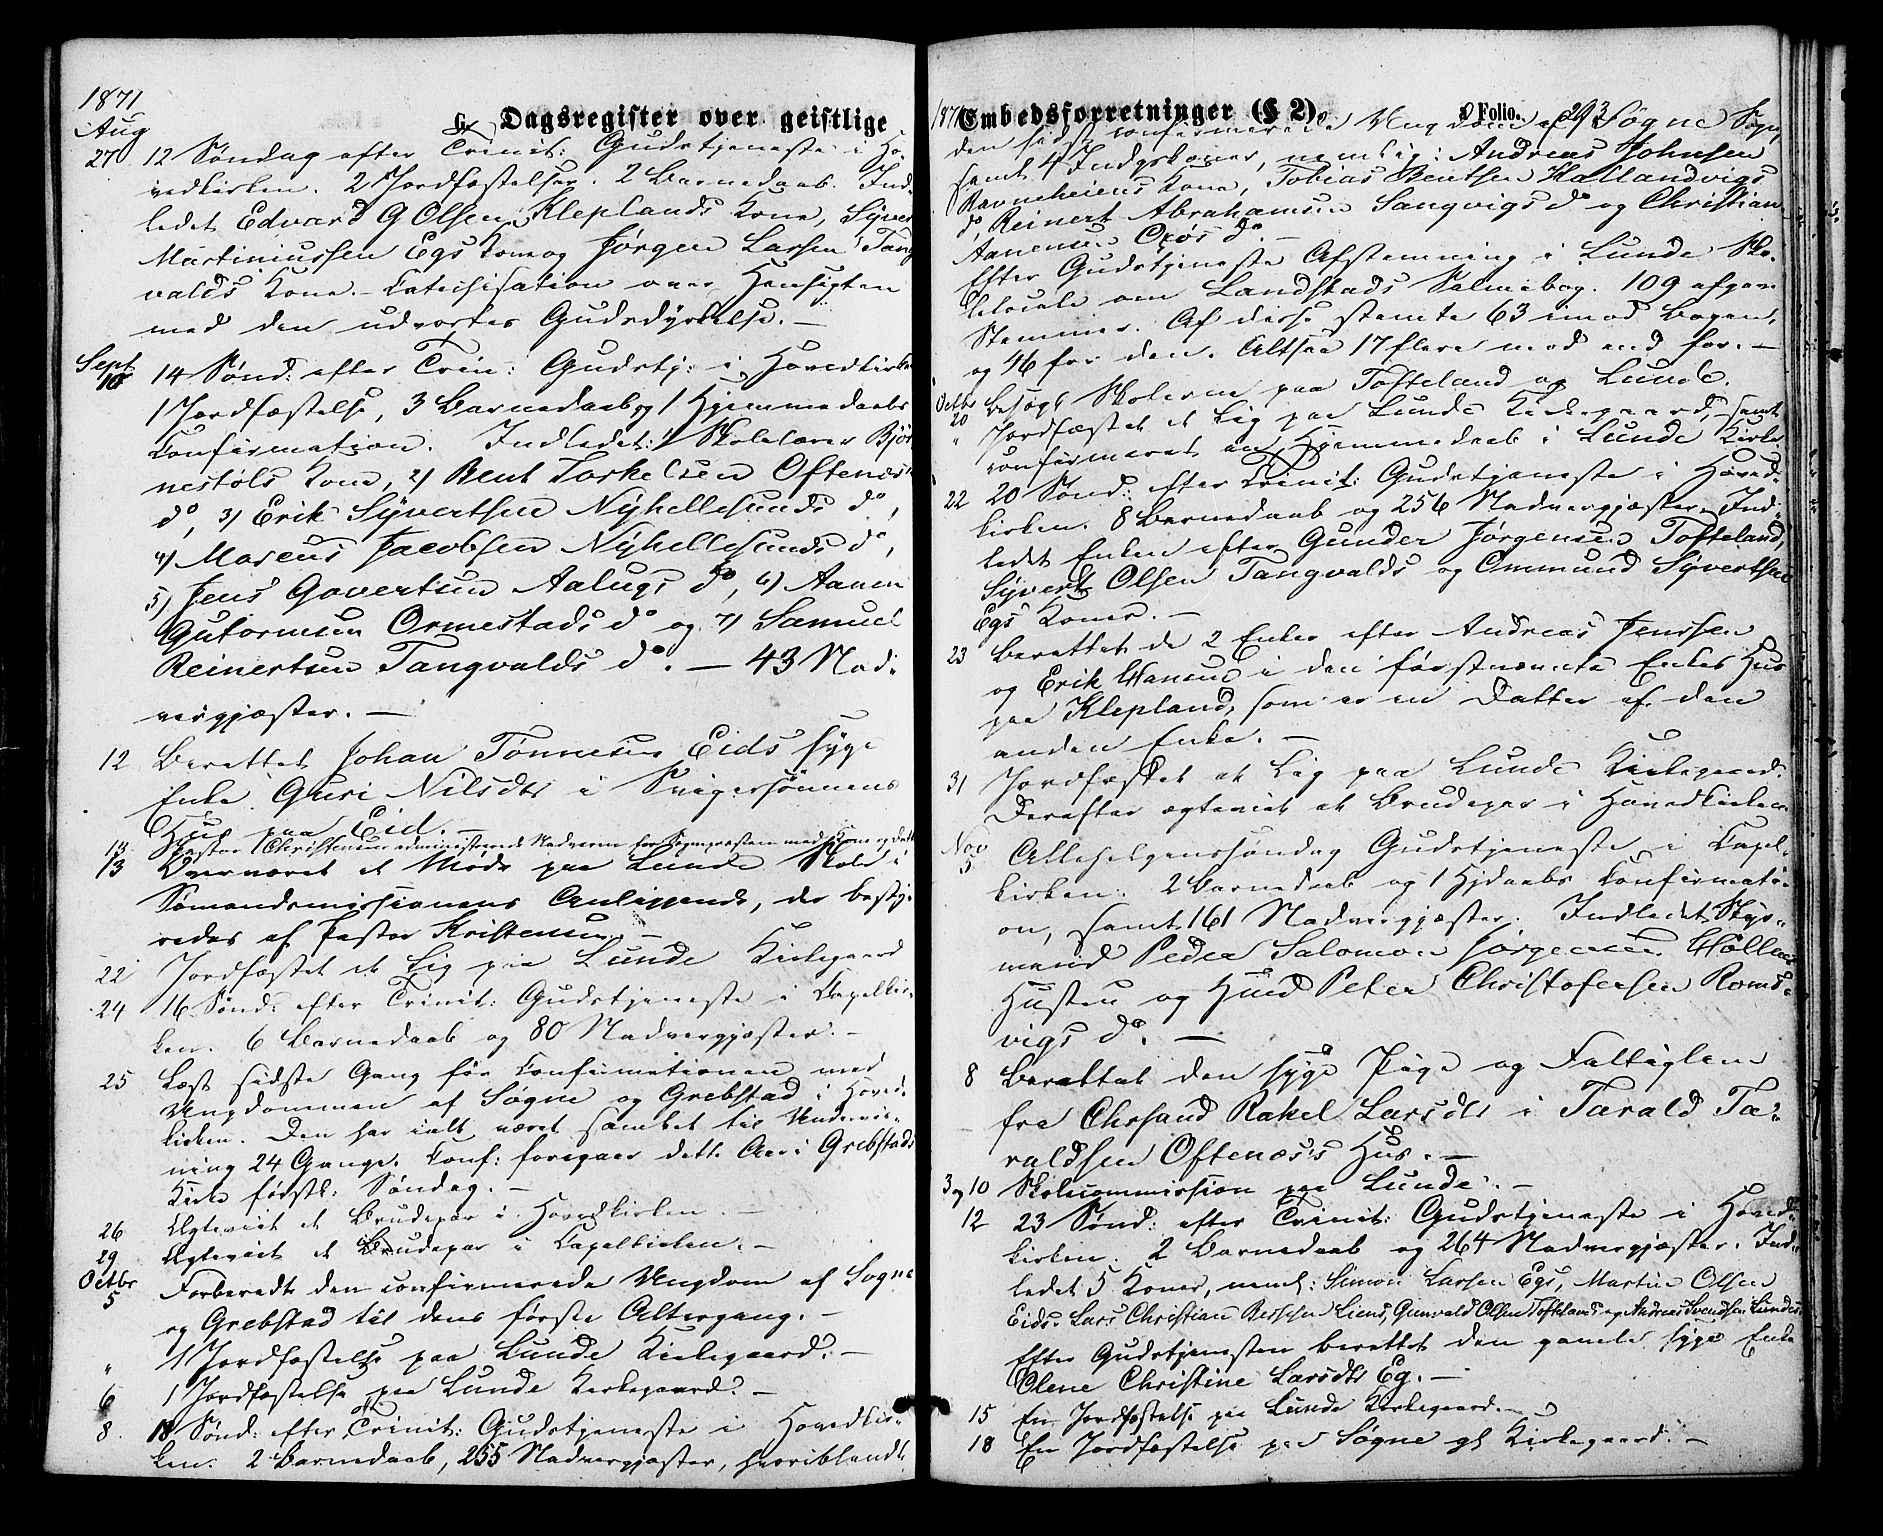 1871
G. Dagsregister over geistlige
Aug
27 12 Søndag efter Trinit: Gudstjeneste i Ho-
vedkirken. 2 Jordfæstelser. 2 Barnedaab. Ind-
ledet Edvard G Olsen Kleplands Kone, Syvert
Martiniussen Egs Kone og Jørgen Larsen Tang
valds Kone. - Catechisation over Hensigten
med den udvortes Gudsdyrkelse. -
Sept
10 14 Sønd: efter Trin: Gudstj: i Hovedkirken
1 Jordfæstelse, 3 Barnedaab og 1 Hjemmedaabs
Confirmation. Indledet: 1) Skolelærer Bjør
nestøls Kone, 2) Bent Torkelsen Oftenes
do, 3) Erik Syvertsen Nyhellesunds do,
4) Marcus Jacobsen Nyhellesunds do,
5) Jens Govertsen Aalugs do, 6) Aanen
Gutormsen Ormestads do og 7) Samuel
Reinertsen Tangvalds do. - 43 Nad-
vergjæster. -
12 Berettet Johan Tønnesen Eids syge
Enke Guri Nilsdtr i Svigersønnens
Hus paa Eid. -
13 Pastor Christensen administrerede Nadveren for Sognepræsten med Kone og Datter
13 Overværet et Møde paa Lunde Skole i
Sømandsmissionens Anliggende, der besty-
redes af Pastor Kristensen. -
22 Jordfæstet et Lig paa Lunde Kirkegaard
24 16 Sønd: efter Trinit: Gudstjeneste i Capelkir-
ken. 6 Barnedaab og 80 Nadvergjæster. -
25 Læst sidste Gang før Confirmationen med
Ungdommen af Søgne og Grebstad i Hoved-
kirken. Den har ialt været samlet til Undervis-
ning 24 Gange. Conf: foregaar dette Aar i Grebstads
Kirke førstk: Søndag. -
26 Ægteviet et Brudepar i Hovedkirken. -
29 Ægteviet et Brudepar i Capelkirken. -
Octbr
5 Forberedt den confirmerede Ungdom af Søgne
og Grebstad til dens første Altergang. -
" 1 Jordfæstelse paa Lunde Kirkegaard. -
6 1 Jordfæstelse paa Lunde Kirkegaard. -
8. 18 Sønd: efter Trinit: Gudstjeneste i Hovedkir-
ken. 2 Barnedaab, 255 Nadvergjæster, hvoriblandt
1871 Embedsforretninger (§ 2). Folio. 293
den sidst confirmerede Ungdom af Søgne Sogn
samt 4 Indgskoner, nemlig: Andreas Johnsen
Ravneheiens Kone, Tobias Bentsen Hallandvigs
do, Reinert Abrahamsen Sangvigs do og Christian
Aanensen Oxøs do. -
Efter Gudstjeneste Afstemning i Lunde Sko-
lelocale om Landstads Salmebog. 109 afgave
Stemmer. Af disse stemte 63 imod Bogen,
og 46 for den. Altsaa 17 flere mod end for. -
Octbr Besøgt Skolerne paa Tofteland og Lunde.
20
" Jordfæstet et Lig paa Lunde Kirkegaard, samt
confirmeret en Hjemmedaab i Lunde Kirke
22 20 Sønd: efter Trinit: Gudstjeneste i Hoved-
kirken. 8 Barnedaab og 256 Nadvergjæster. Ind-
ledet Enken efter Gunder Jørgensen Tofteland,
Syvert Olsen Tangvalds og Ommund Syvertsen
Egs Koner. -
23 Berettet de 2 Enker efter Andreas Jenssen
og Erik Hansen i den førstnævnte Enkes Hus
paa Klepland, som er en Datter af den
anden Enke. -
31 Jordfæstet et Lig paa Lunde Kirkegaard.
Derefter ægteviet et Brudepar i Hovedkirken
Nov
5 Allehelgenssøndag Gudstjeneste i Capel-
kirken. 2 Barnedaab og 1 Hjdaabs Confirmati-
on, samt 161 Nadvergjæster. Indledet Styr-
mand Peder Salomon Jørgensen Høllens
Hustru og Hmd Peter Christofersen Roms-
vigs do. -
8 Berettet den syge Pige og Fattiglem
fra Chrsand Rakel Larsdtr i Tarald Ta-
raldsen Oftenæs's Hus. -
3 og 10 Skolecommission paa Lunde. -
12 23 Sønd: efter Trinit: Gudstjeneste i Hoved-
kirken. 2 Barnedaab og 264 Nadvergjæster. Ind-
ledet 5 Koner, neml: Simon Larsen Egs, Martin Olsen
Eids. Lars Christian Liens, Gunvald Olsen Toftelands og Andreas Svendsen Lundes.
Efter Gudstjenesten berettet den gamle syge Enke
Olene Christine Larsdtr Eg. -
15 En Jordfæstelse paa Lunde Kirkegaard. -
18 En Jordfæstelse paa Søgne gl Kirkegaard. -